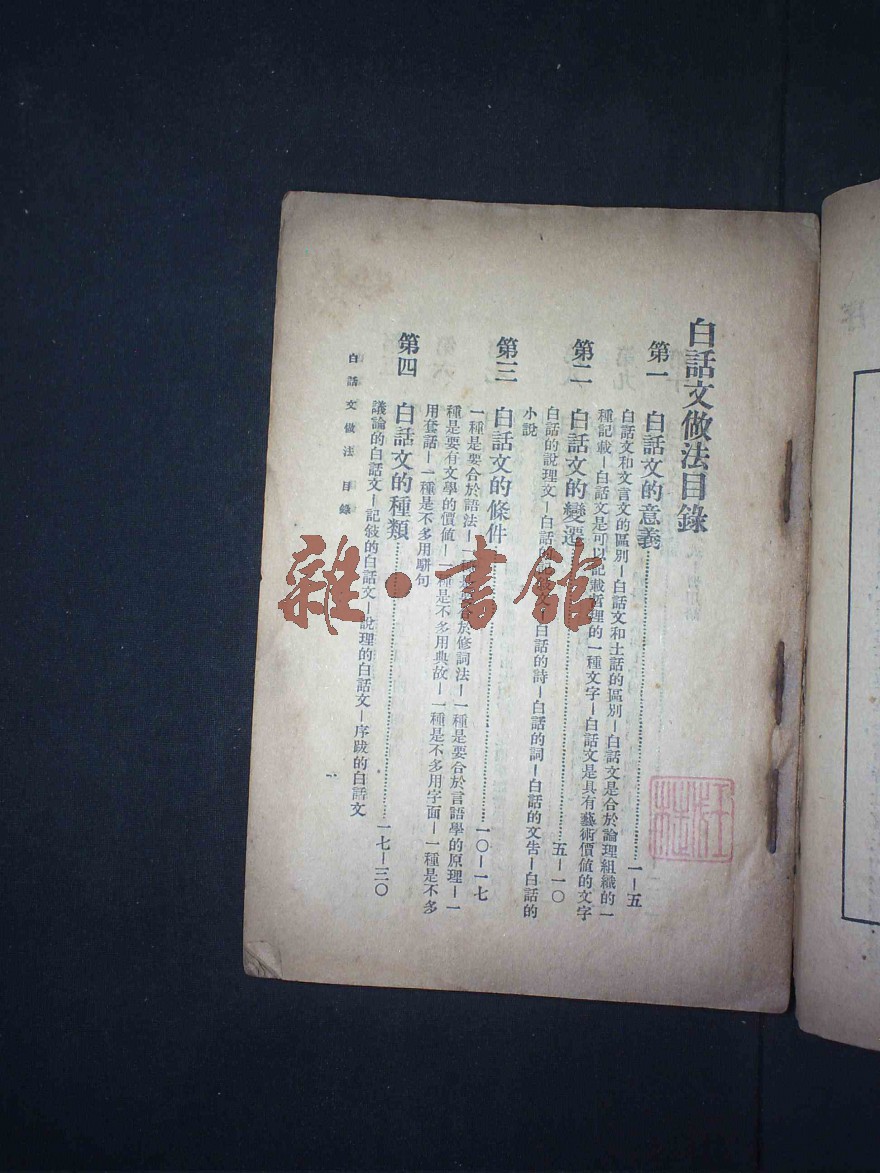 白話文做法目錄
第一　白話文的意義……一—五
白話文和文言文的區別—白話文和土話的區別—白話文是合於論理組織的一
種記載—白話文是可以記載哲理的一種文字—白話文是具有藝術價值的文字
第二　白話文的變遷……五—一〇
白話的說理文—白話的—白話的詩—白話的詞—白話的文告—白話的
小說
第三　白話文的條件……一〇—一七
一種是要合於語法—一於修詞法—一種是要合於言語學的原理—一
種是要有文學的價值—一種是不多用典故—一種是不多用字面—一種是不多
用套語—一種是不多用駢句
第四　白話文的種類……一七—三〇
議論的白話文—記敍的白話文—說理的白話文—序跋的白話文
白話文做法　目錄
一
雜·書館
序